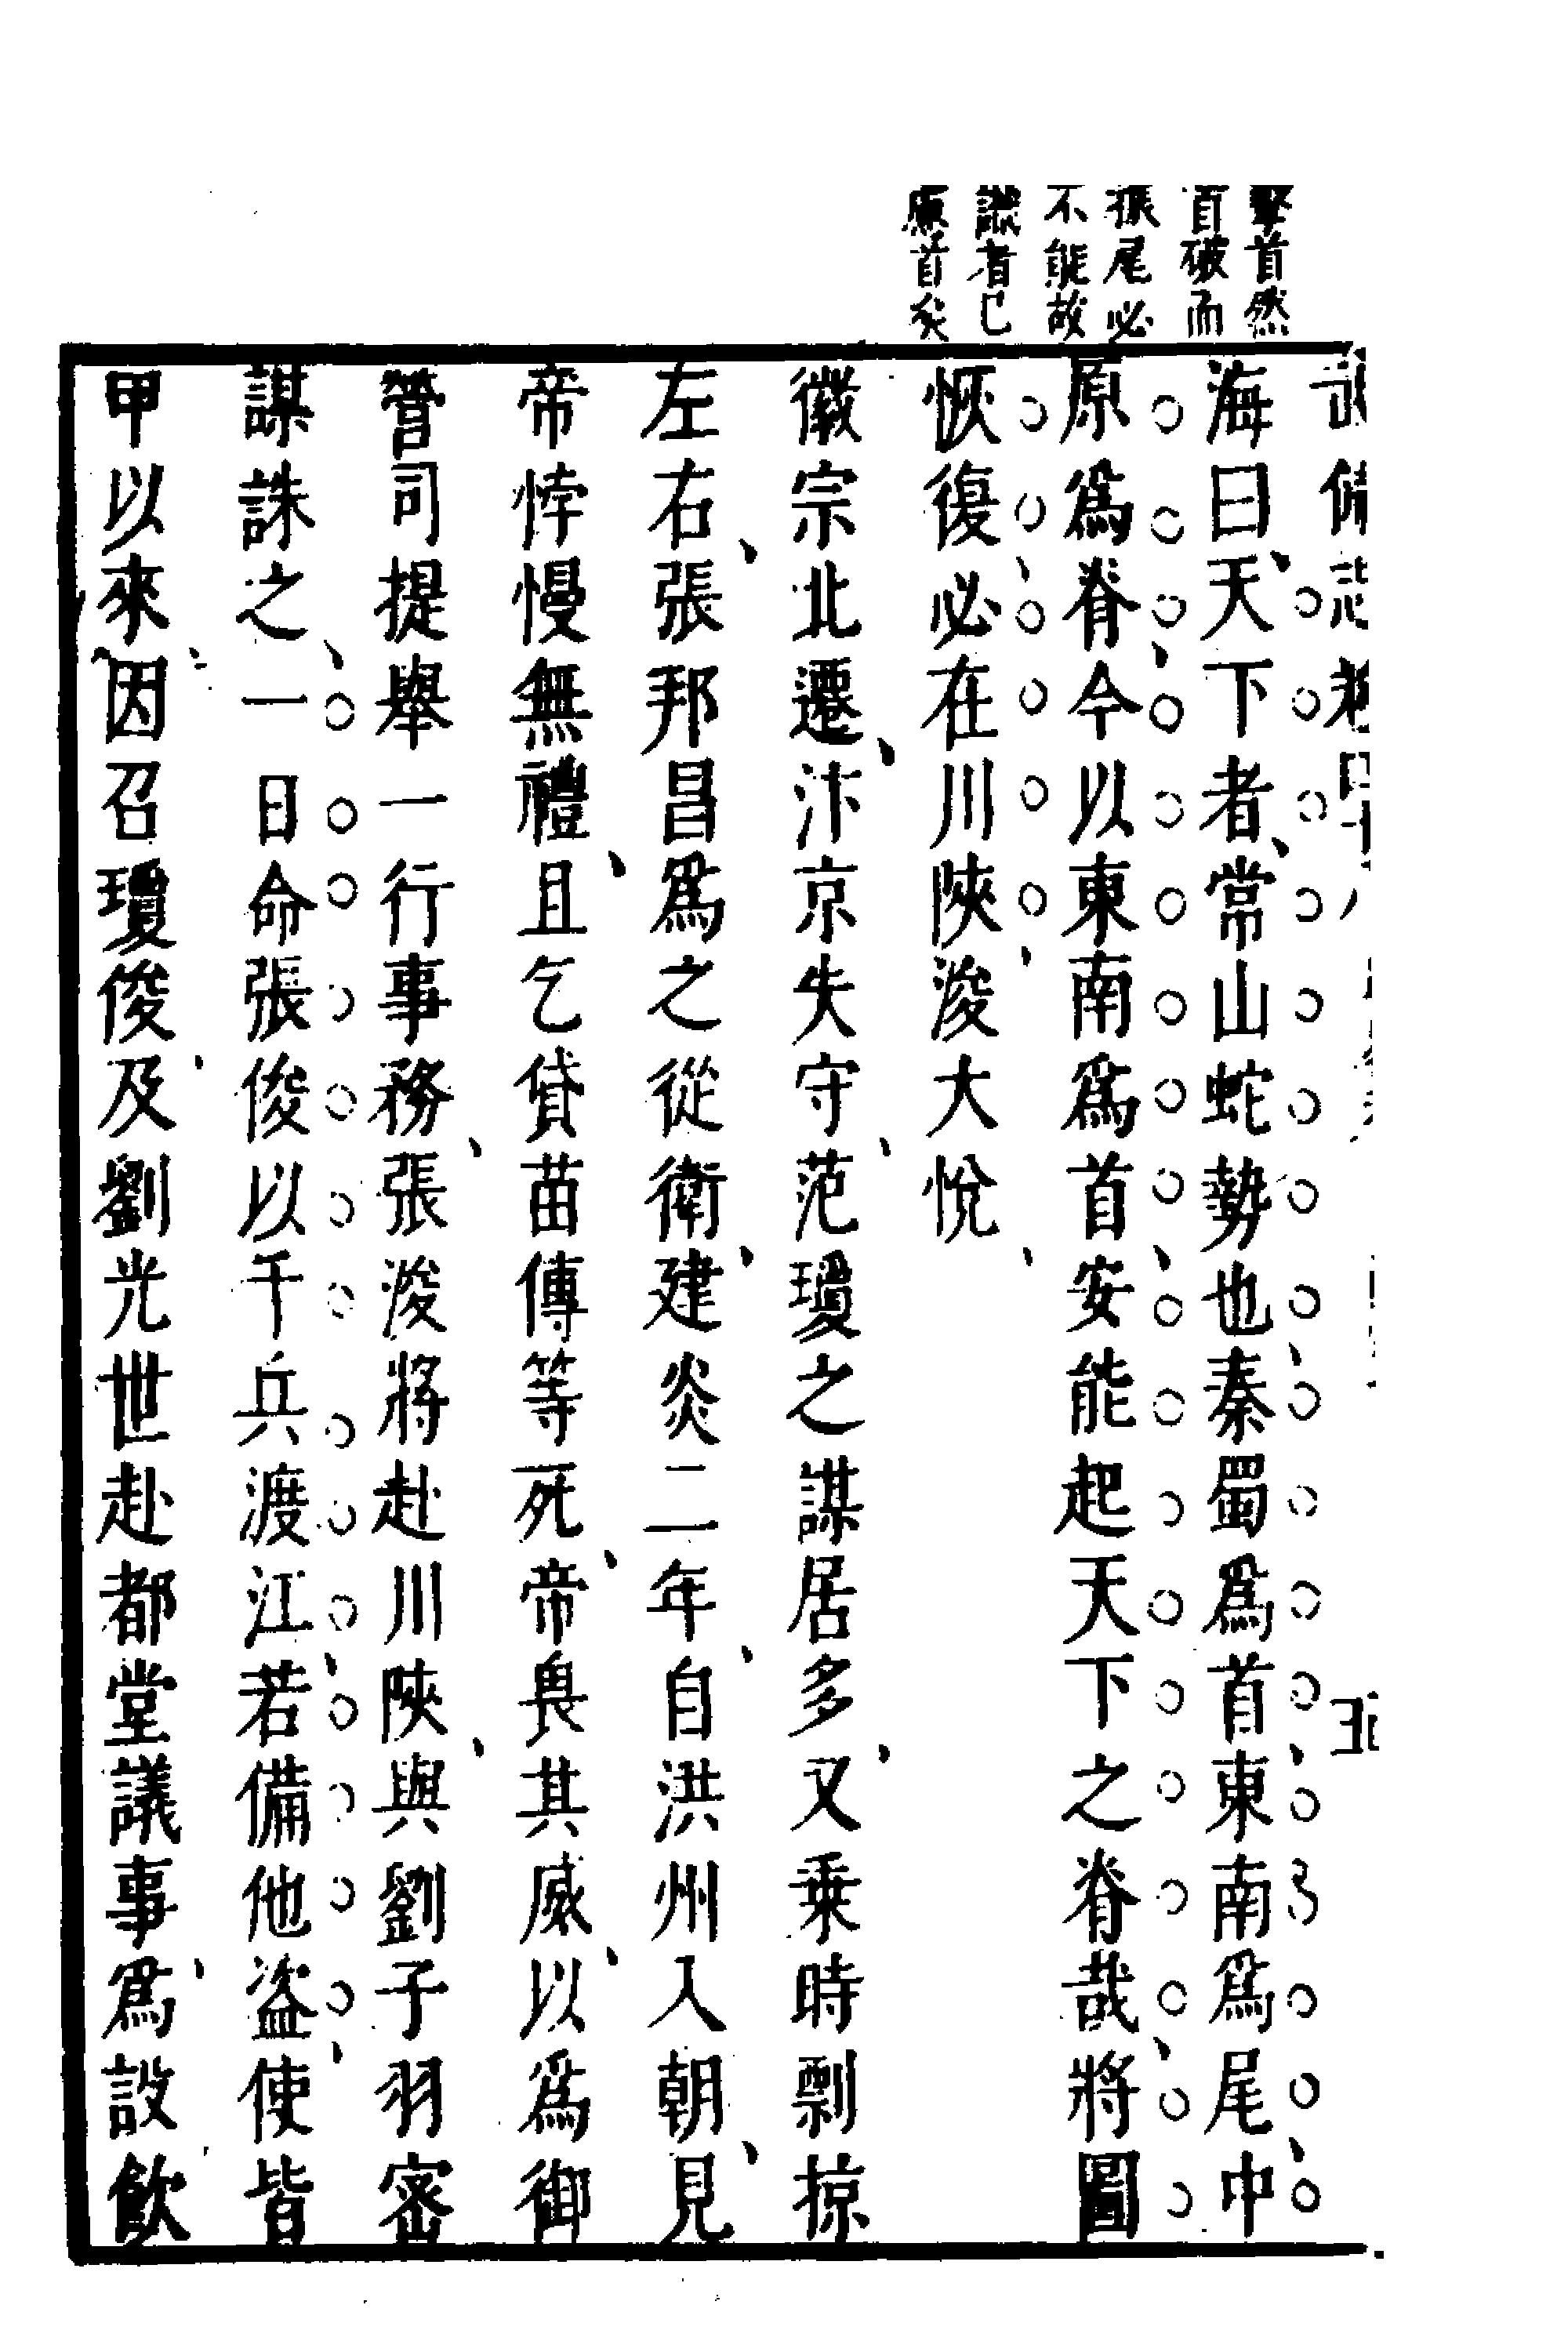 擊首然
首破而
振尾必
不能故
識者已
慮首矣
武備志卷四十八
五
海曰天下者常山蛇勢也秦蜀爲首東南爲尾中
原爲脊今以東南爲首安能起天下之脊哉將圖
恢復必在川陝浚大悅
徽宗北遷汴京失守范瓊之謀居多又乗時剽掠
左右張邦昌爲之從衛建炎二年自洪州入朝見
帝悖慢無禮且乞貸苗傳等死帝畏其威以爲御
營司提舉一行事務張浚將赴川陝與劉子羽密
謀誅之一日命張俊以千兵渡江若備他盜使皆
甲以來因召瓊俊及劉光世赴都堂議事爲設飲